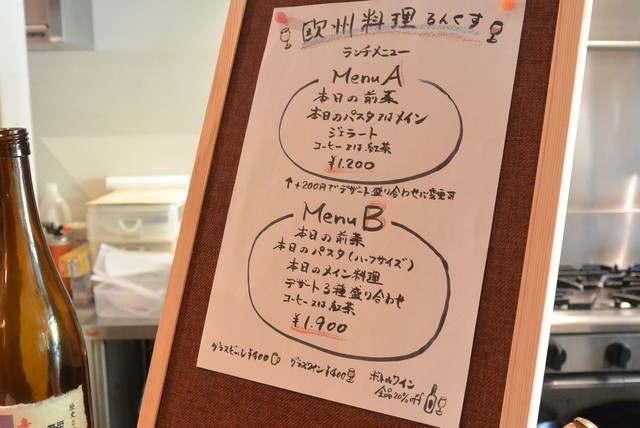 欧州料理るんぐす
ランチメニュー
Menu A
本日の前菜
本日のパスタ又はメイン
ジェラート
コーヒー又は紅茶
¥1.200
↑+200円でデザート盛り合わせに変更可
Menu B
本日の前菜
本日のパスタ(ハーフサイズ)
本日のメイン料理
デザート3種盛り合わせ
コーヒー又は紅茶
¥1.900
グラスビール¥400
グラスワイン¥400
ボトルワイン
全品20%off